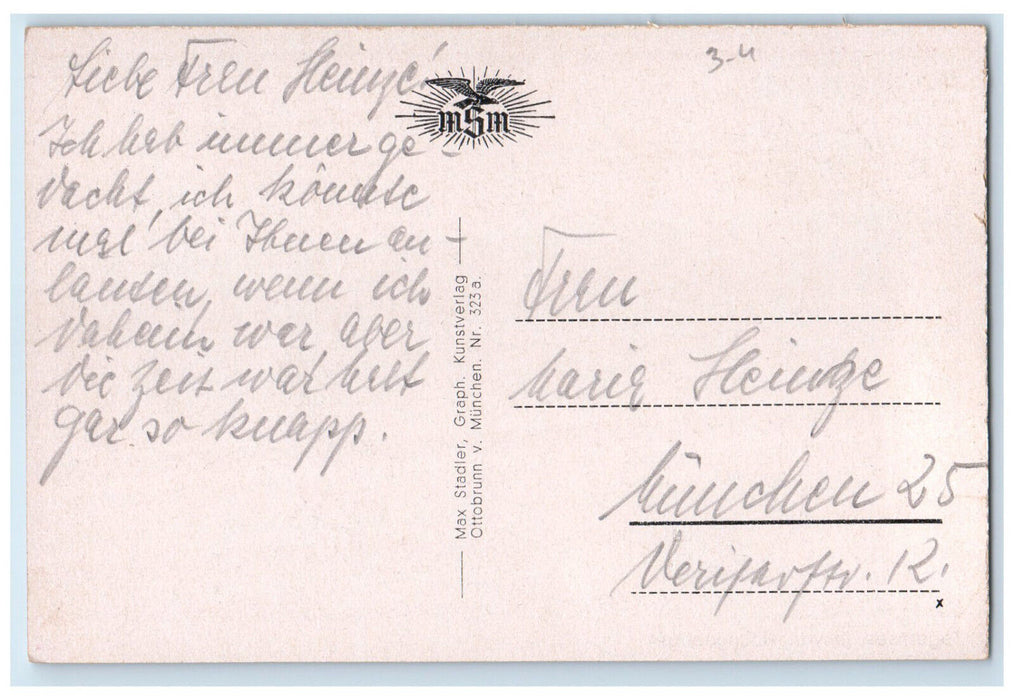 3-4
Liebe Frau Heinze!
Ich hab immer ge-
dacht, ich könnte
mal bei Ihnen an-
landen, wenn ich
daheim war, aber
die Zeit war halt
gar so knapp.
mSm
Max Stadler, Graph. Kunstverlag
Ottobrunn v. München. Nr. 323 a.
Frau
Marie Heinze
München 25
12.
x